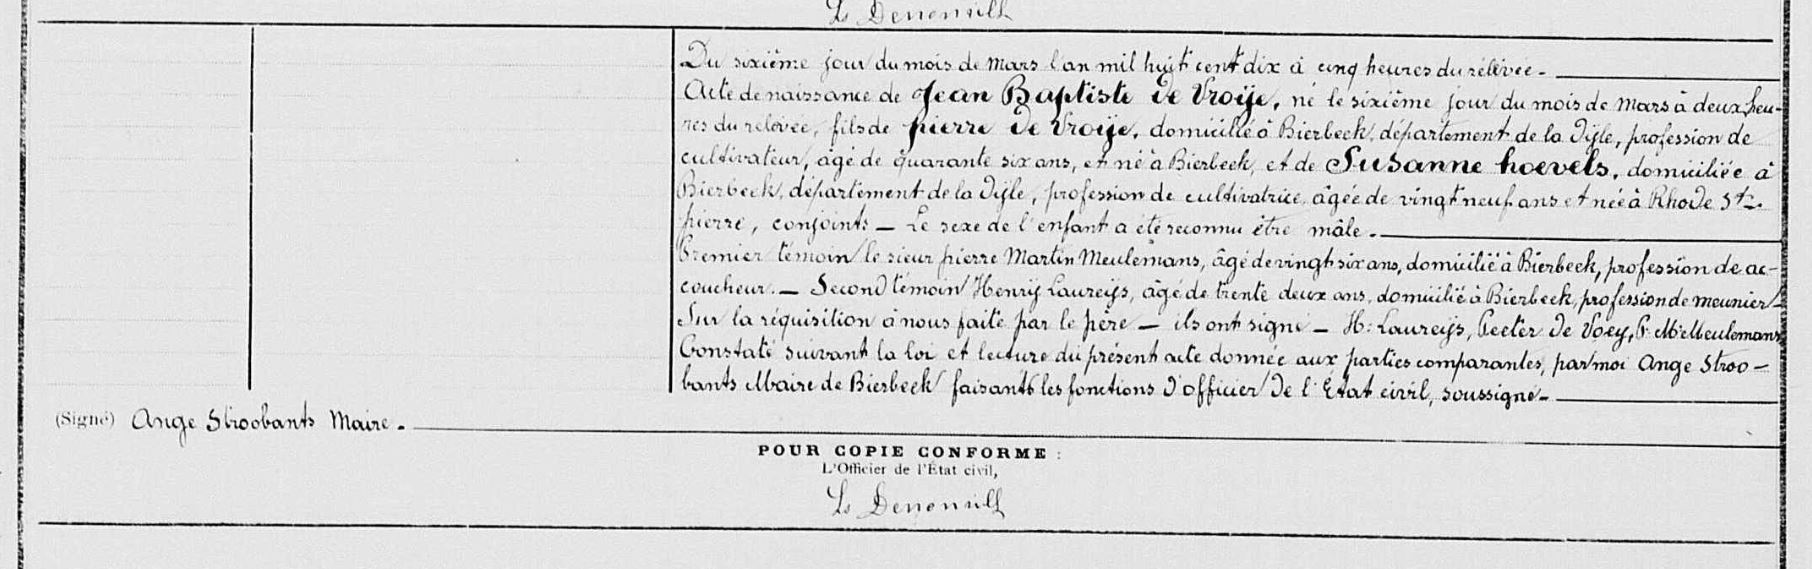 Du sixième jour du mois de mars l'an mil huit cent dix à cinq heures du rélevée.
Acte de naissance de Jean Baptiste de Vroije, né le sixième jour du mois de mars à deux heu-
res du relevée, fils de pierre de Vroije, domicilié à Bierbeek, département de la Dijle, profession de
cultivateur, agé de quarante six ans, et né à Bierbeek, et de Susanne hoevels, domiciliée à
Bierbeek, département de la Dijle, profession de cultivatrice, âgée de vingt neuf ans et née à Rhode St.
pierre, conjoints — Le sexe de l'enfant a été reconnu être mâle.
Premier témoin le sieur pierre Martin Meulemans, âgé de vingt six ans, domicilié à Bierbeek, profession de ac-
coucheur. — Second témoin Henrij Laureijs, âgé de trente deux ans, domicilié à Bierbeek, profession de meunier
Sur la réquisition à nous faite par le père — ils ont signé — H: Laureijs, Peeter de Voey, P. M. Meulemans
Constaté suivant la loi et lecture du présent acte donnée aux parties comparantes, par moi Ange Stroo-
bants Maire de Bierbeek faisants les fonctions d'officier de l'État civil, soussigné —
(Signé) Ange Stroobants Maire.
POUR COPIE CONFORME :
L'Officier de l'État civil,